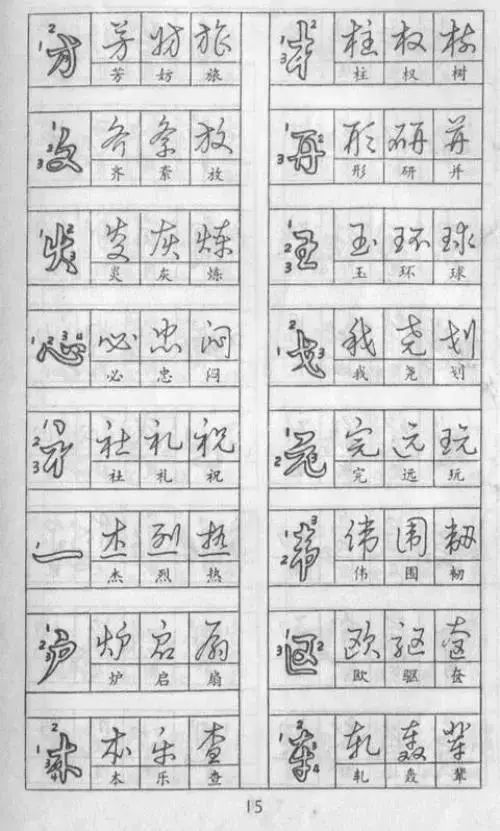 方 芳 妨 旅
芳 妨 旅
文 齐 紊 放
齐 紊 放
火 炎 灰 炼
炎 灰 炼
心 必 忠 闷
必 忠 闷
礻 社 礼 祝
社 礼 祝
一 杰 烈 热
杰 烈 热
户 炉 启 扇
炉 启 扇
木 本 乐 查
本 乐 查
木 柱 权 树
柱 权 树
开 形 研 并
形 研 并
王 玉 环 球
玉 环 球
戈 我 尧 划
我 尧 划
元 完 远 玩
完 远 玩
韦 伟 围 韧
伟 围 韧
区 欧 驱 奁
欧 驱 奁
车 轧 轰 辈
轧 轰 辈
15